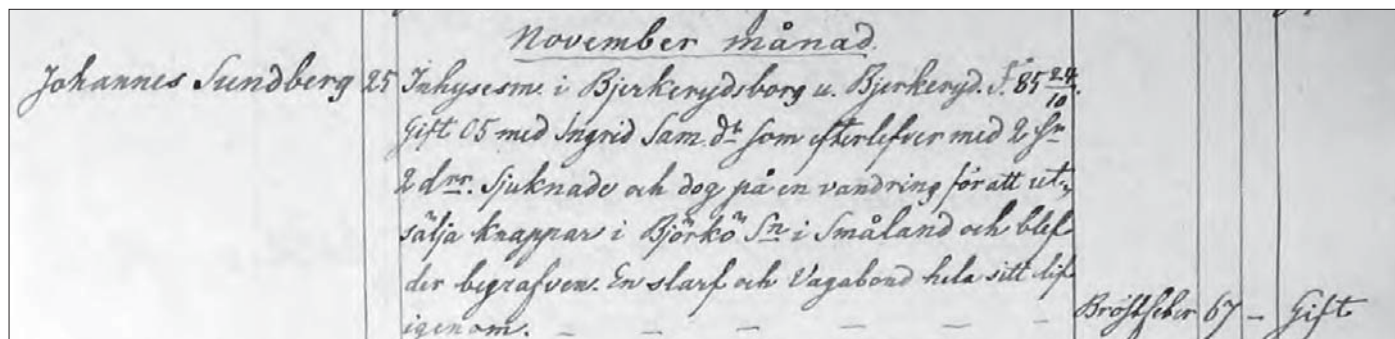 November månad.
Johannes Sundberg 25 Inhysesm. i Bjerkerydsborg u. Bjerkeryd. F. 85 24/10.
Gift 05 med Ingrid Sam. dr som efterlefver med 2 sr
2 drr. Sjuknade och dog på en vandring för att ut-
sälja knappar i Björkö Sn i Småland och blef
der begrafven. En slarf och Vagabond hela sitt lif
igenom. — — — — — — Bröstfeber 67 – Gift